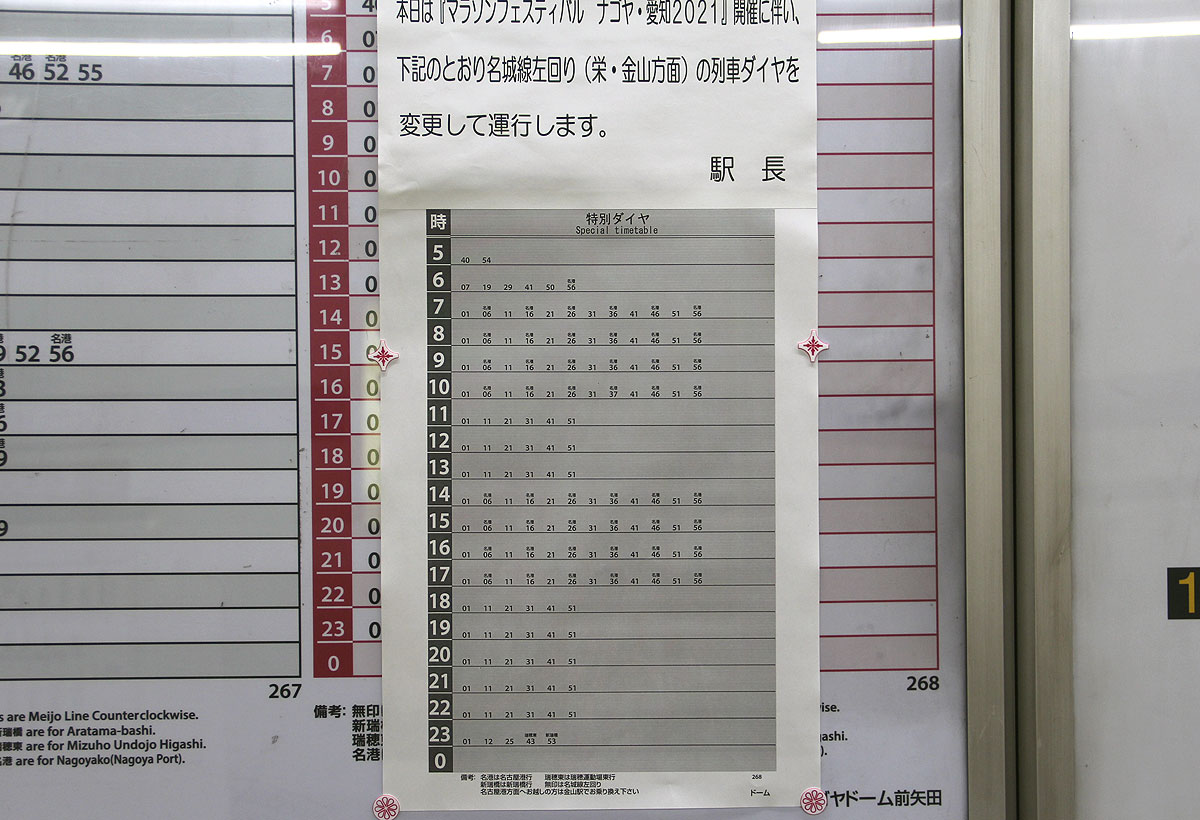 本日は『マラソンフェスティバル ナゴヤ・愛知2021』開催に伴い、
下記のとおり名城線左回り（栄・金山方面）の列車ダイヤを
変更して運行します。
駅 長
時 特別ダイヤ
Special timetable
5 40 54
名港
6 07 19 29 41 50 56
名港 名港 名港 名港 名港 名港
7 01 06 11 16 21 26 31 36 41 46 51 56
名港 名港 名港 名港 名港 名港
8 01 06 11 16 21 26 31 36 41 46 51 56
名港 名港 名港 名港 名港 名港
9 01 06 11 16 21 26 31 36 41 46 51 56
名港 名港 名港 名港 名港 名港
10 01 06 11 16 21 26 31 37 41 46 51 56
11 01 11 21 31 41 51
12 01 11 21 31 41 51
13 01 11 21 31 41 51
名港 名港 名港 名港 名港 名港
14 01 06 11 16 21 26 31 36 41 46 51 56
名港 名港 名港 名港 名港 名港
15 01 06 11 16 21 26 31 36 41 46 51 56
名港 名港 名港 名港 名港 名港
16 01 06 11 16 21 26 31 36 41 46 51 56
名港 名港 名港 名港 名港 名港
17 01 06 11 16 21 26 31 36 41 46 51 56
18 01 11 21 31 41 51
19 01 11 21 31 41 51
20 01 11 21 31 41 51
21 01 11 21 31 41 51
22 01 11 21 31 41 51
瑞穂東 新瑞橋
23 01 12 25 43 53
0
備考: 名港は名古屋港行 瑞穂東は瑞穂運動場東行 268
新瑞橋は新瑞橋行 無印は名城線左回り
名古屋港方面へお越しの方は金山駅でお乗り換え下さい ドーム
名港 名港
46 52 55
名港
52 56
267
s are Meijo Line Counterclockwise.
新瑞橋 are for Aratama-bashi.
瑞穂東 are for Mizuho Undojo Higashi.
名港 are for Nagoyako(Nagoya Port).
5 40
6 0
7 0
8 0
9 0
10 0
11 0
12 0
13 0
14 0
15 0
16 0
17 0
18 0
19 0
20 0
21 0
22 0
23 0
0
268
備考: 無印
新瑞
瑞穂
名港
ise.
gashi.
).
ヤドーム前矢田
1